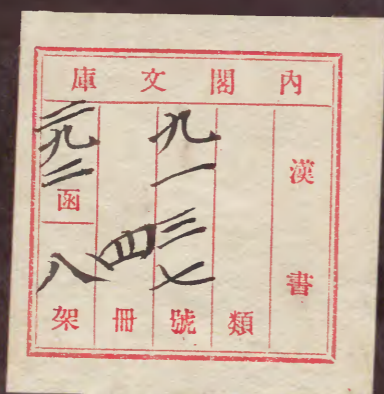 內閣文庫
漢書
類
九一三七號
四冊
二九二函
八架